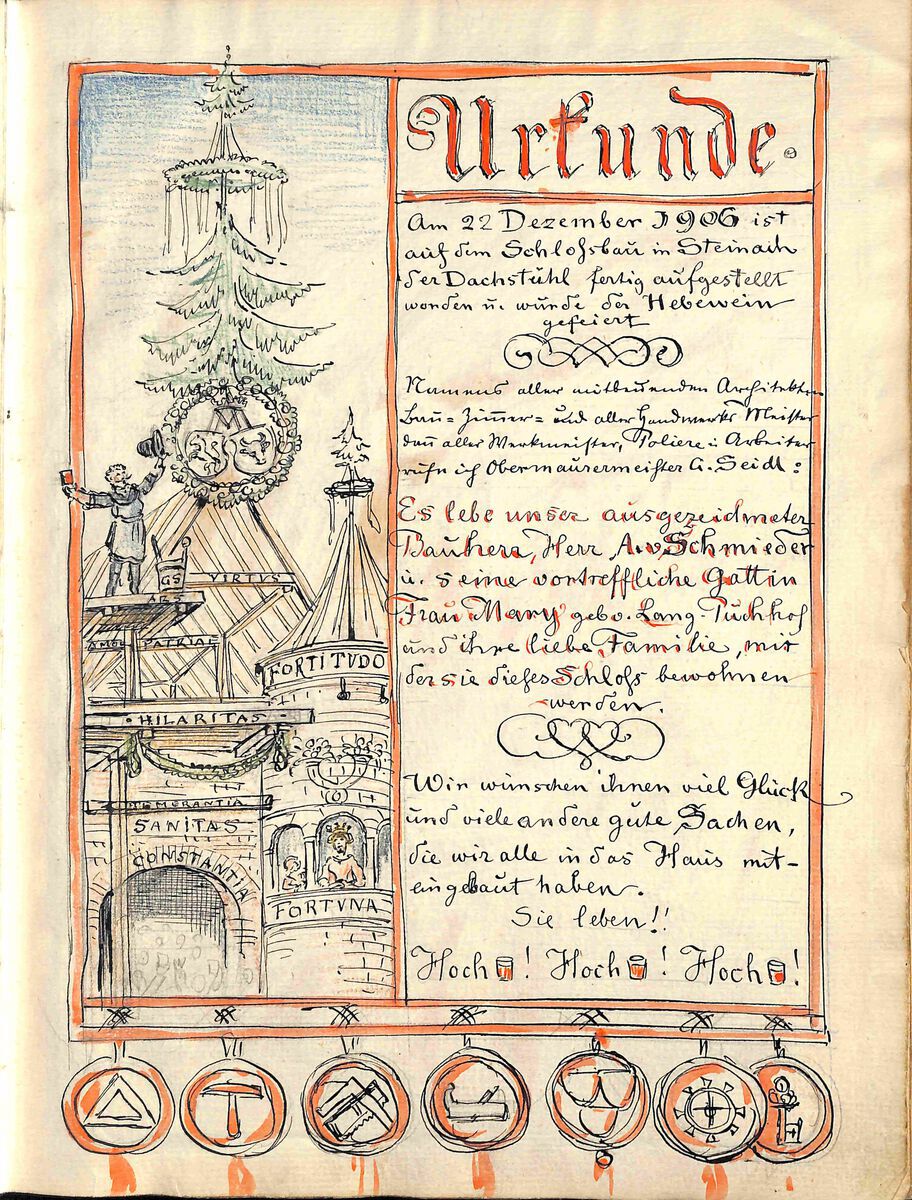 Urkunde.
Am 22 Dezember 1906 ist
auf dem Schloßbau in Steinach
der Dachstuhl fertig aufgestellt
worden u. wurde der Hebewein
gefeiert
Namens aller mitbauenden Architekten
Bau= Zimmer= und aller Handwerks Meister
dann aller Werkmeister, Poliere u Arbeiter
rufe ich Obermaurermeister G. Seidl:
Es lebe unser ausgezeichneter
Bauherr, Herr A. v Schmieder
u. seine vortreffliche Gattin
Frau Mary geb. Lang-Puchhof
und ihre liebe Familie, mit
der sie dieses Schloß bewohnen
werden.
Wir wünschen ihnen viel Glück
und viele andere gute Sachen,
die wir alle in das Haus mit-
eingebaut haben.
Sie leben!!
Hoch ! Hoch ! Hoch !
GS
VIRTVS
ARS
AMOR PATRIAE
FORTITUDO
HILARITAS
TEMERANTIA
SANITAS
CONSTANTIA
FORTVNA